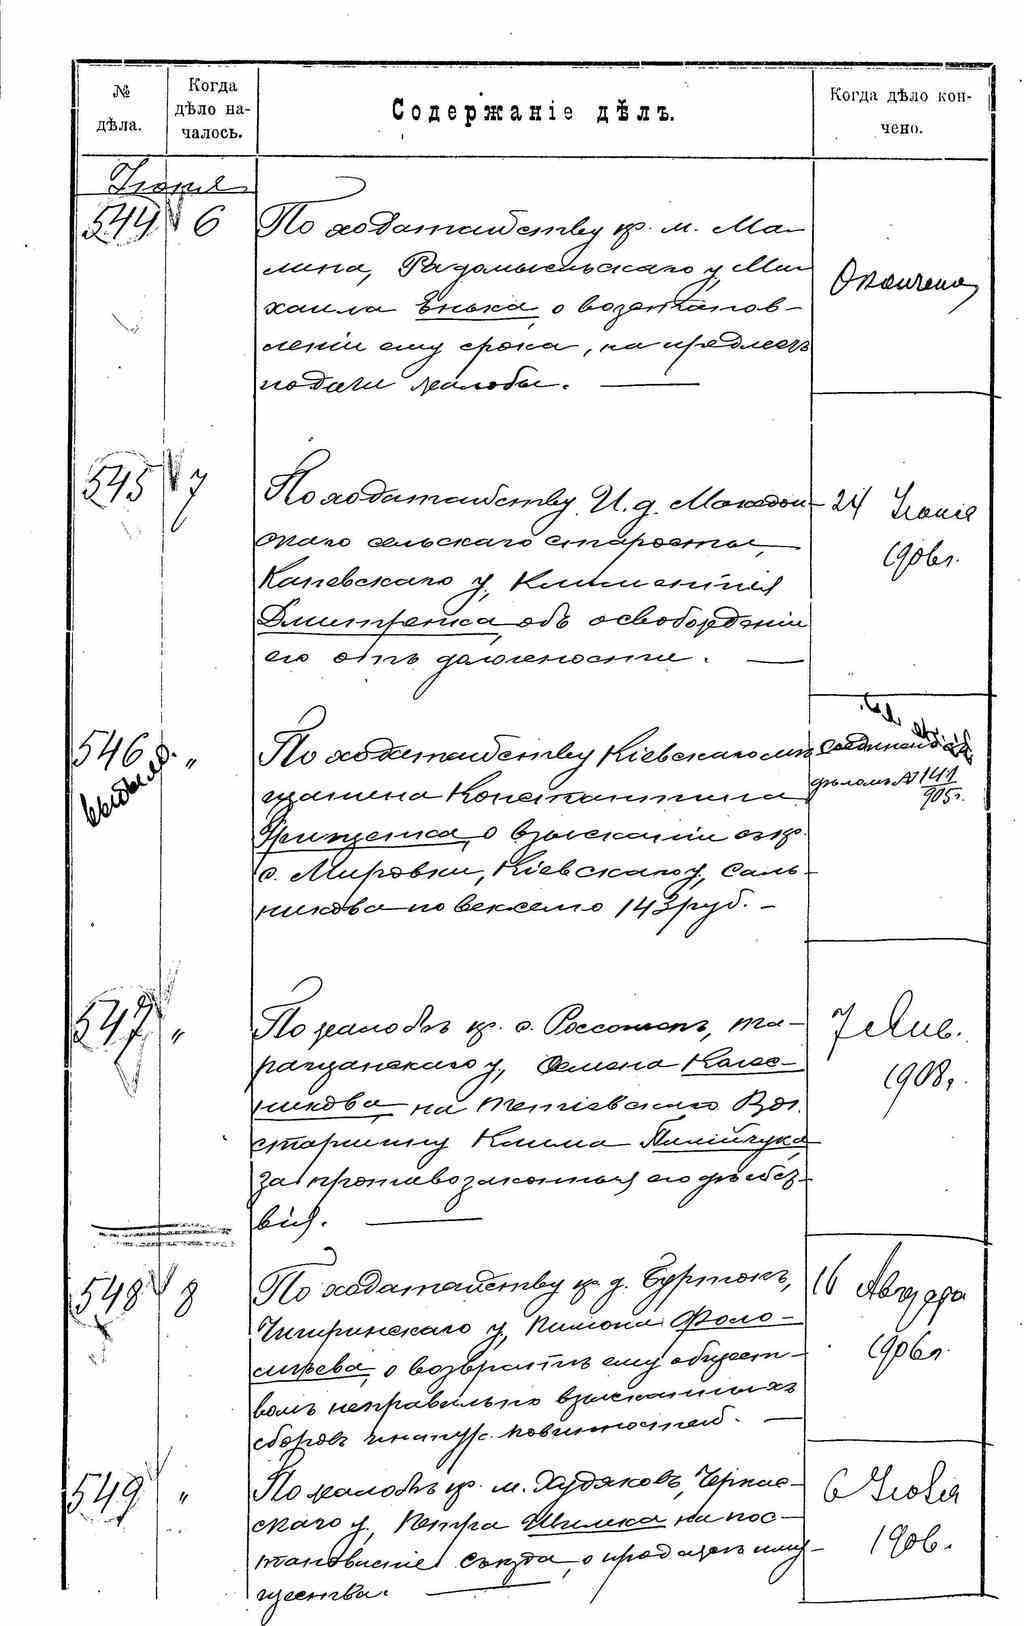 № дѣла.
Когда дѣло на-
чалось.
Содержаніе дѣлъ.
Когда дѣло кон-
чено.
Іюня
544 6 По ходатайству кр. м. Ма-
лина, Радомысльскаго у, Ми-
хаила Енька, о возстанов-
леніи ему срока, на предметъ
подачи жалобы. —
Окончено
545 7 По ходатайству И. д. Македон-
скаго сельскаго старосты,
Каневскаго у, Климентія
Дмитренка, объ освобожденіи
его отъ должности. —
24 Іюня
1906г.
546 „ По ходатайству Кіевскаго мѣ
выбыло.
щанина Константина
Грищенка, о взысканіи съ кр.
с. Мировки, Кіевскаго у, Саль-
никова по векселю 143 руб. —
Соединено съ
дѣломъ № 141/905г.
547 „ По жалобѣ кр. с. Россошекъ, Та-
ращанскаго у, Семена Колес-
никова, на Тетіевскаго Вол.
старшину Клима Палійчука
за противозаконныя его дѣйст-
вія. —
7 Янв.
1908г.
548 8 По ходатайству кр. д. Буртокъ,
Чигиринскаго у, Пимона Фоло-
мѣева, о возвратѣ ему общест-
вомъ неправильно взысканныхъ
сборовъ и натур. повинностей. —
16 Августа
1906г.
549 „ По жалобѣ кр. м. Худяковъ, Черкас-
скаго у, Петра Шимка на пос-
тановленіе Съѣзда, о продажѣ иму-
щества. —
6 Іюля
1906.